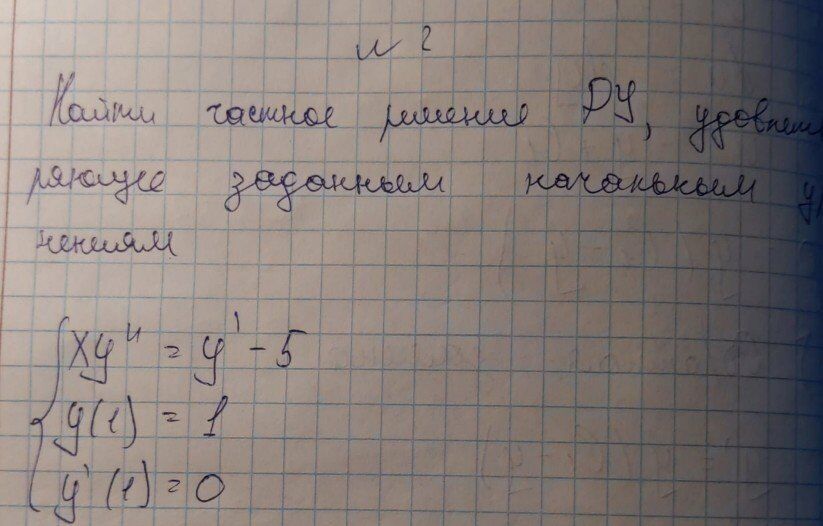 № 2
Найти частное решение ДУ, удовлетво
ряющее заданным начальным у
нениям
xy" = y' - 5
y(1) = 1
y'(1) = 0